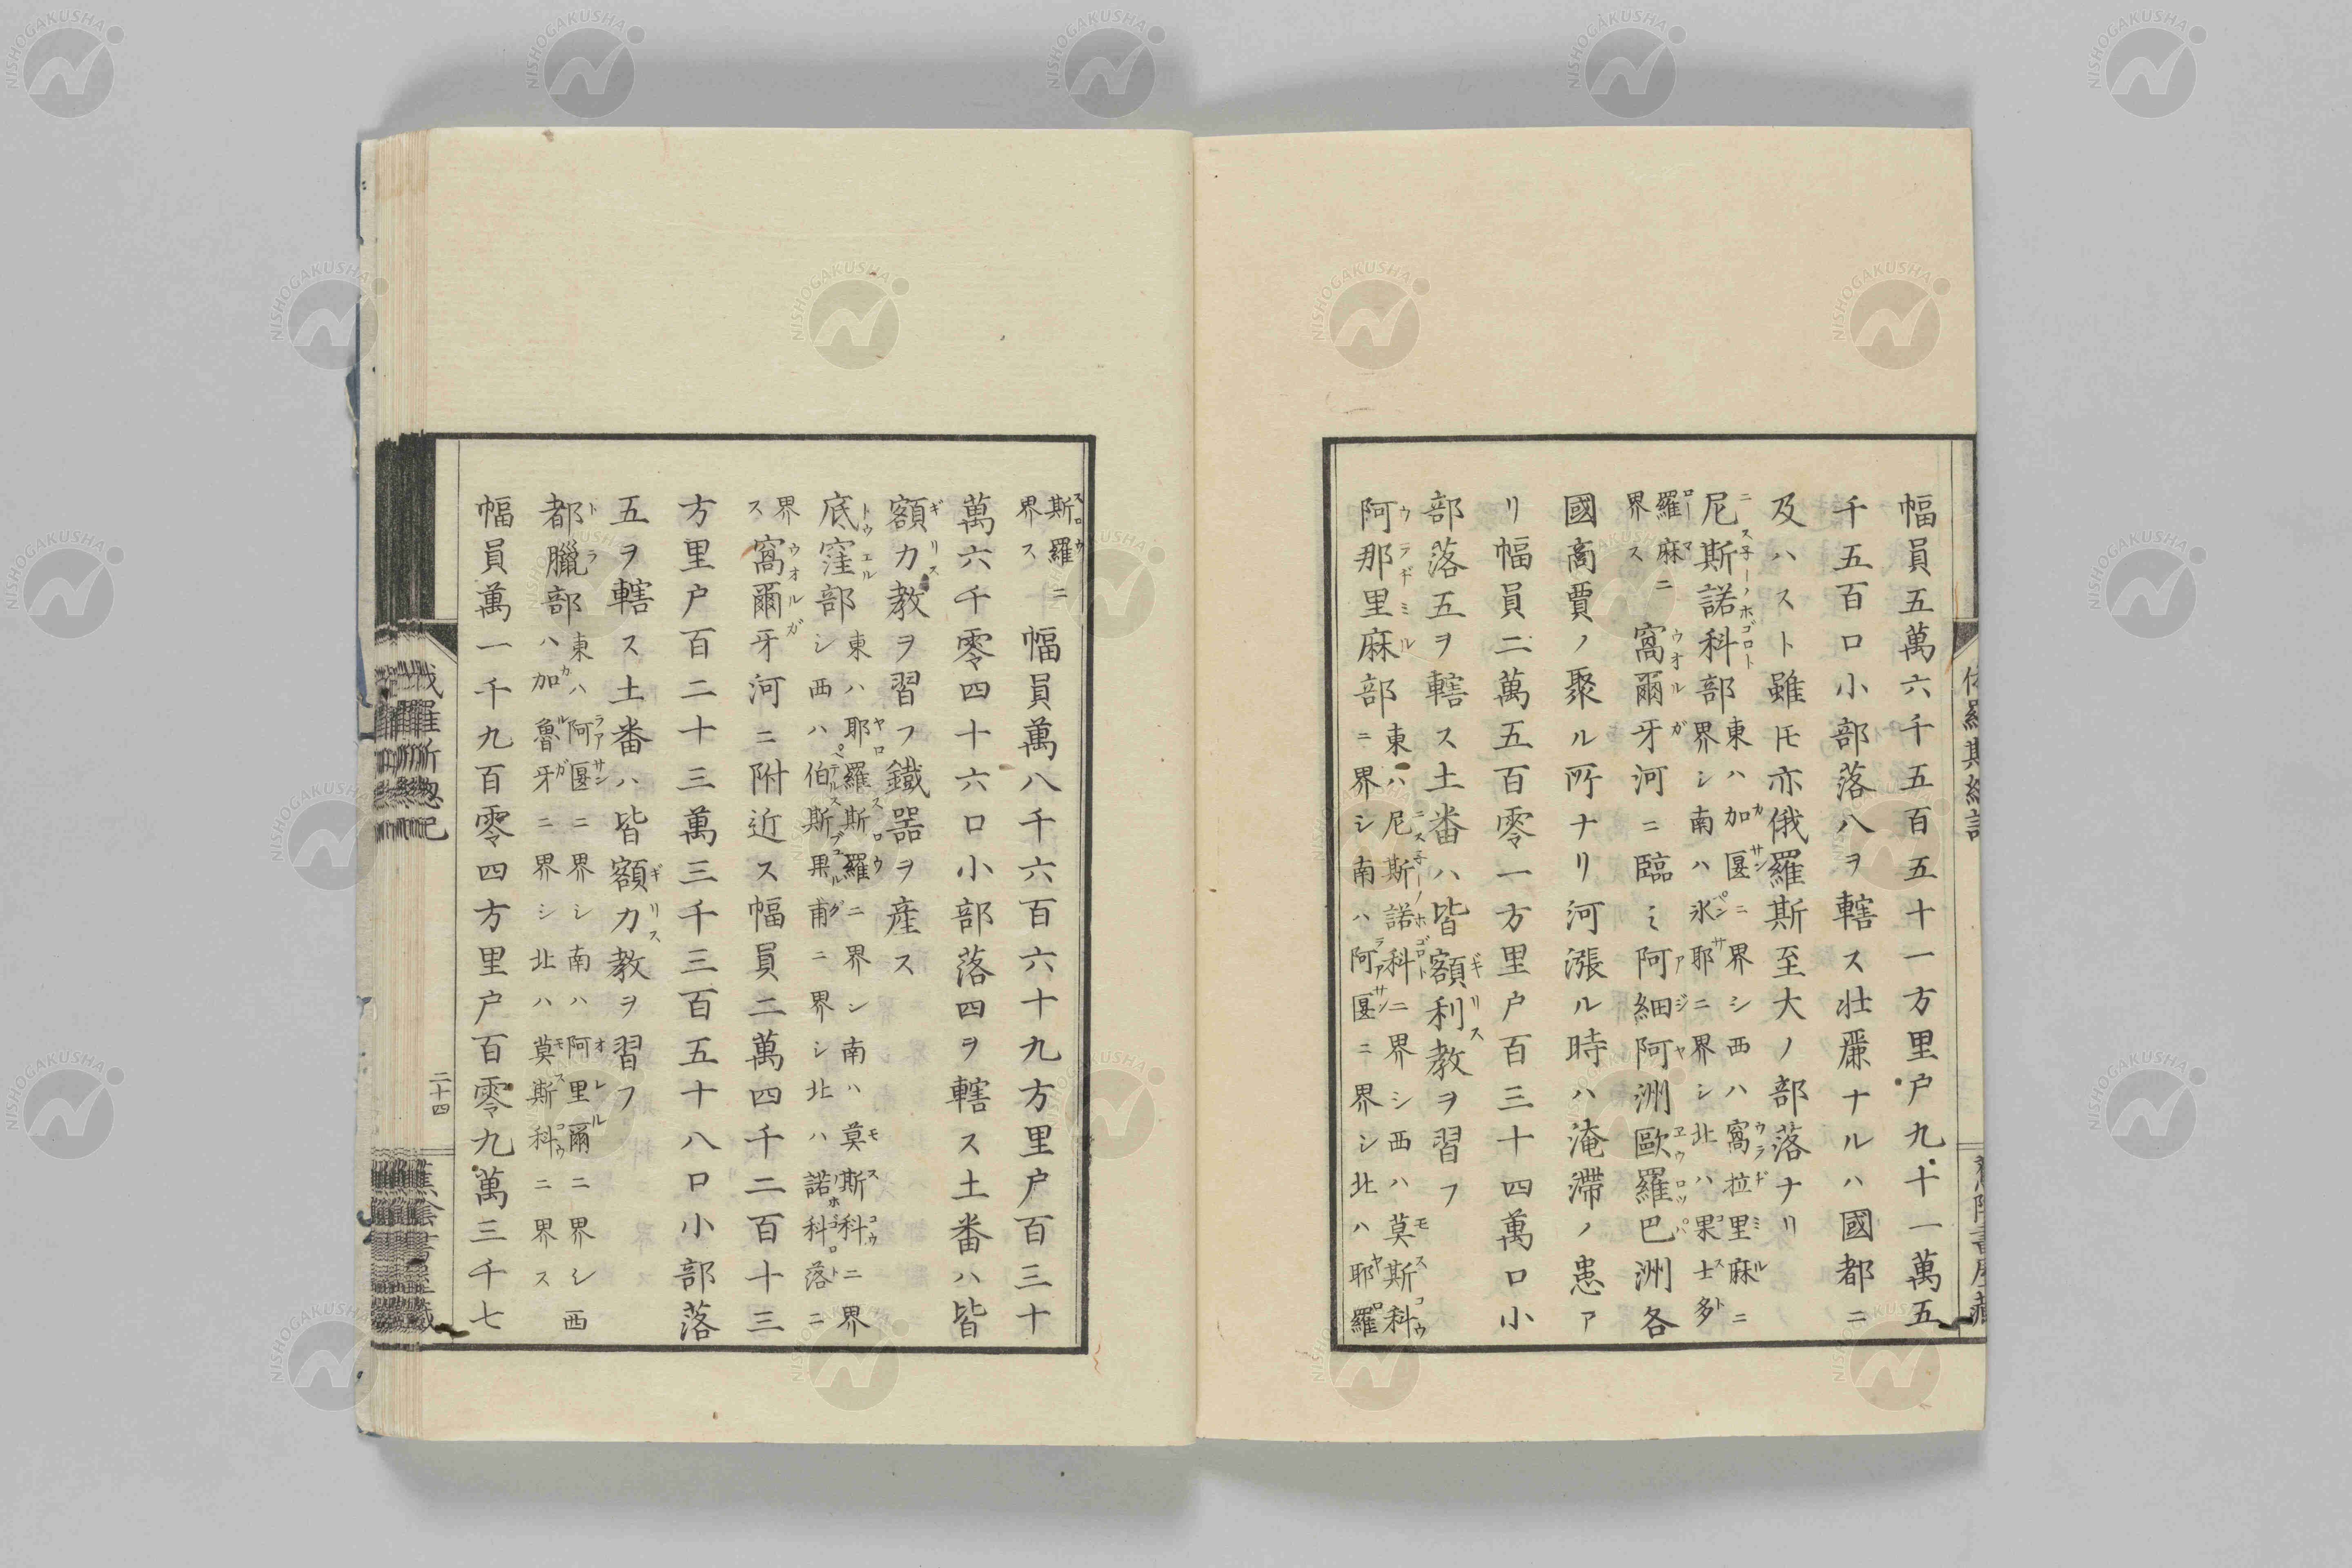 幅員五萬六千五百五十一方里户九十一萬五
千五百口小部落八ヲ轄ス壮麗ナルハ國都ニ
及ハスト雖𪜈亦俄羅斯至大ノ部落ナリ
尼斯諾科部東ハ加匽ニ界シ西ハ窩拉里麻ニ
界シ南ハ氷耶ニ界シ北ハ果士多
羅麻ニ
界ス
窩爾牙河ニ臨ミ阿細阿洲歐羅巴洲各
國商賈ノ聚ル所ナリ河漲ル時ハ淹滯ノ患ア
リ幅員二萬五百零一方里户百三十四萬口小
部落五ヲ轄ス土番ハ皆額利教ヲ習フ
阿那里麻部東ハ尼斯諾科ニ界シ西ハ莫斯科
ニ界シ南ハ阿匽ニ界シ北ハ耶羅
斯羅ニ
界ス
幅員萬八千六百六十九方里户百三十
萬六千零四十六口小部落四ヲ轄ス土番ハ皆
額力教ヲ習フ鐵器ヲ産ス
底窪部東ハ耶羅斯羅ニ界シ南ハ莫斯科ニ界
シ西ハ伯斯果甫ニ界シ北ハ諾科落ニ
界
ス
窩爾牙河ニ附近ス幅員二萬四千二百十三
方里户百二十三萬三千三百五十八口小部落
五ヲ轄ス土番ハ皆額力教ヲ習フ
都臘部東ハ阿匽ニ界シ南ハ阿里爾ニ界シ西
ハ加魯牙ニ界シ北ハ莫斯科ニ界ス
幅員萬一千九百零四方里户百零九萬三千七
俄羅斯總記
二十四
蕉陰書屋藏
NISHOGAKUSHA